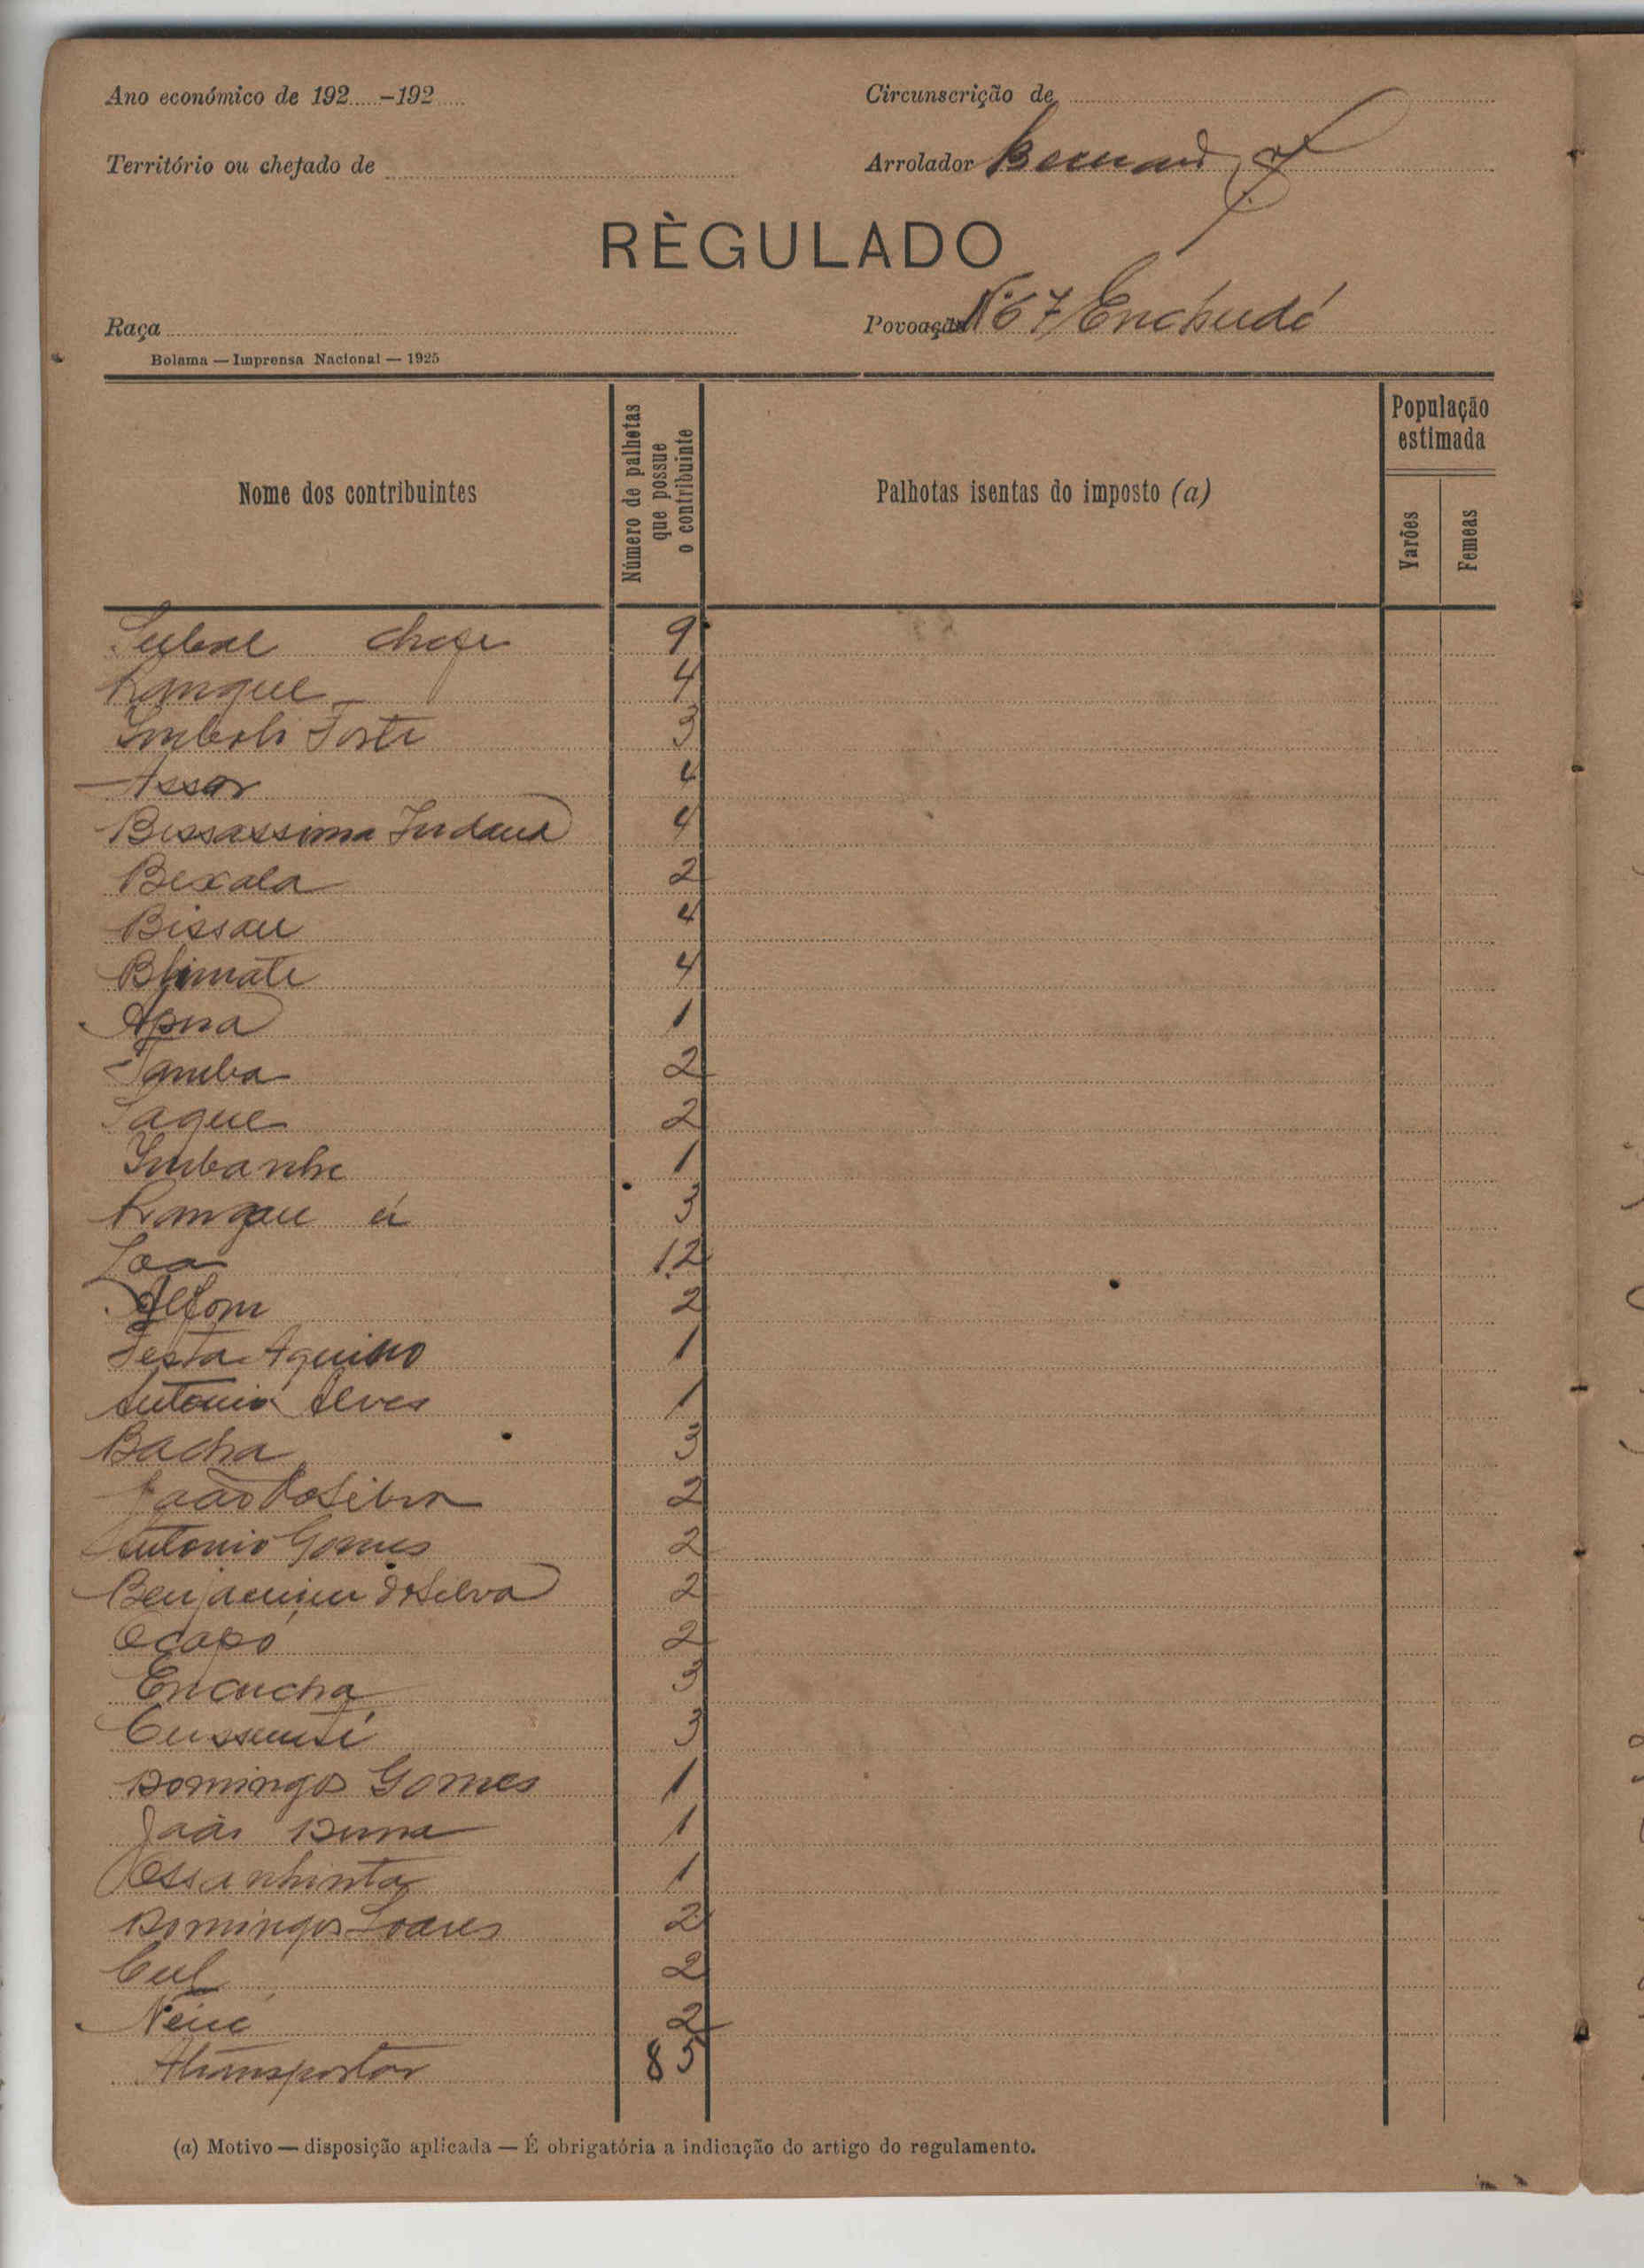 Ano económico de 192.....-192.....
Circunscrição de
Território ou chefado de
Arrolador
RÈGULADO
Raça
Povoação Nº 67 Enchudé
Bolama — Imprensa Nacional — 1925
Nome dos contribuintes
Número de palhotas que possue o contribuinte
Palhotas isentas do imposto (a)
População estimada
Varões
Femeas
chefe 9
Kanque 4
3
Assar 4
Bissassima 4
Bexala 2
Bissau 4
4
1
Tamba 2
Saque 2
Imbanhe 1
3
Loa 12
2
Testa Aquino 1
Antonio Alves 1
Bacha 3
João da Silva 2
Antonio Gomes 2
Benjamim da Silva 2
Ocapó 2
Encucha 3
3
Domingos Gomes 1
João 1
Ossanhinta 1
Domingos Soares 2
Cul 2
2
A transportar 85
(a) Motivo — disposição aplicada — É obrigatória a indicação do artigo do regulamento.